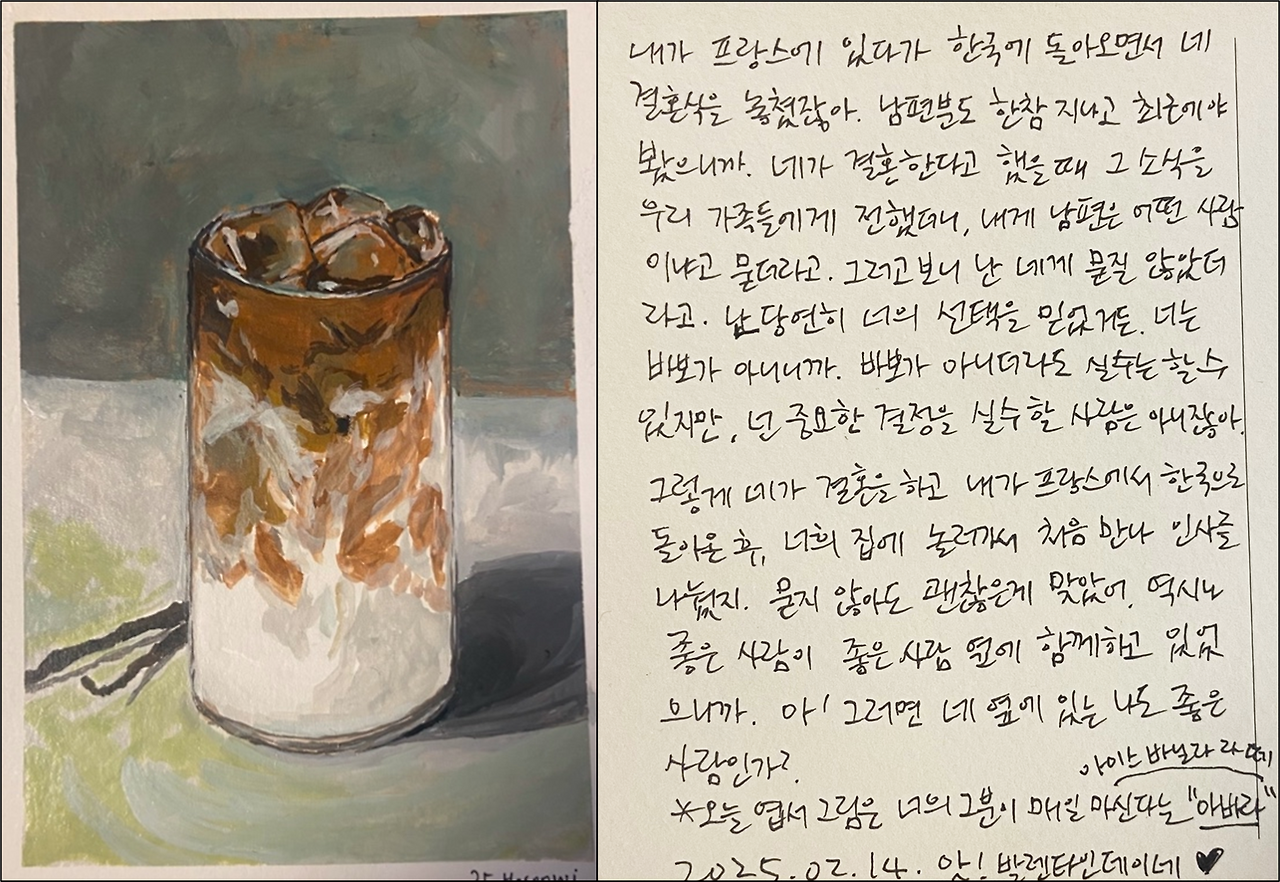 내가 프랑스에 있다가 한국에 돌아오면서 네
결혼식을 놓쳤잖아. 남편분도 한참 지나고 최근에야
봤으니까. 네가 결혼한다고 했을 때 그 소식을
우리 가족들에게 전했더니, 내게 남편은 어떤 사람
이냐고 묻더라고. 그러고보니 난 네게 묻질 않았더
라고. 난 당연히 너의 선택을 믿었거든. 너는
바보가 아니니까. 바보가 아니더라도 실수는 할 수
있지만, 넌 중요한 결정을 실수할 사람은 아니잖아.
그렇게 네가 결혼을 하고 내가 프랑스에서 한국으로
돌아온 후, 너희 집에 놀러가서 처음 만나 인사를
나눴지. 묻지 않아도 괜찮은게 맞았어. 역시나
좋은 사람이 좋은 사람 옆에 함께하고 있었
으니까. 아! 그러면 네 옆에 있는 나도 좋은
사람인가?
아이스 바닐라 라떼
*오늘 엽서 그림은 너의 그분이 매일 마신다는 "아바라"
2025.02.14. 앗! 발렌타인데이네 ♥
25